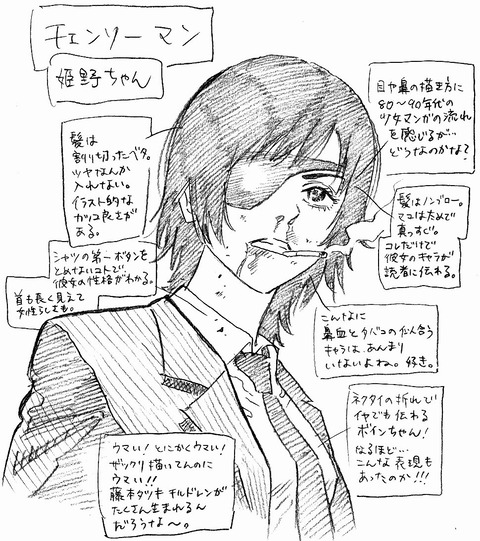 チェンソーマン
姫野ちゃん
髪は
割り切ったベタ。
ツヤなんか
入れない。
イラスト的な
カッコ良さが
ある。
シャツの第一ボタンを
とめないコトで
彼女の性格がわかる。
首も長く見えて
女性らしさも。
目や鼻の描き方に
80〜90年代の
少女マンガの流れ
を感じるが…
どうなのかな?
髪はノンブロー。
マユは太めで
真っすぐ。
コレだけで
彼女のキャラが
読者に伝わる。
こんなに
鼻血とタバコの似合う
キャラは、あんまり
いないよね。好き。
ネクタイの折れで
イヤでも伝わる
ボインちゃん!
なるほど…
こんな表現も
あったのか!!!
ウマい!とにかくウマい!
ザックリ描いてんのに
ウマい!!
藤本タツキチルドレンが
たくさん生まれるん
だろうな〜。